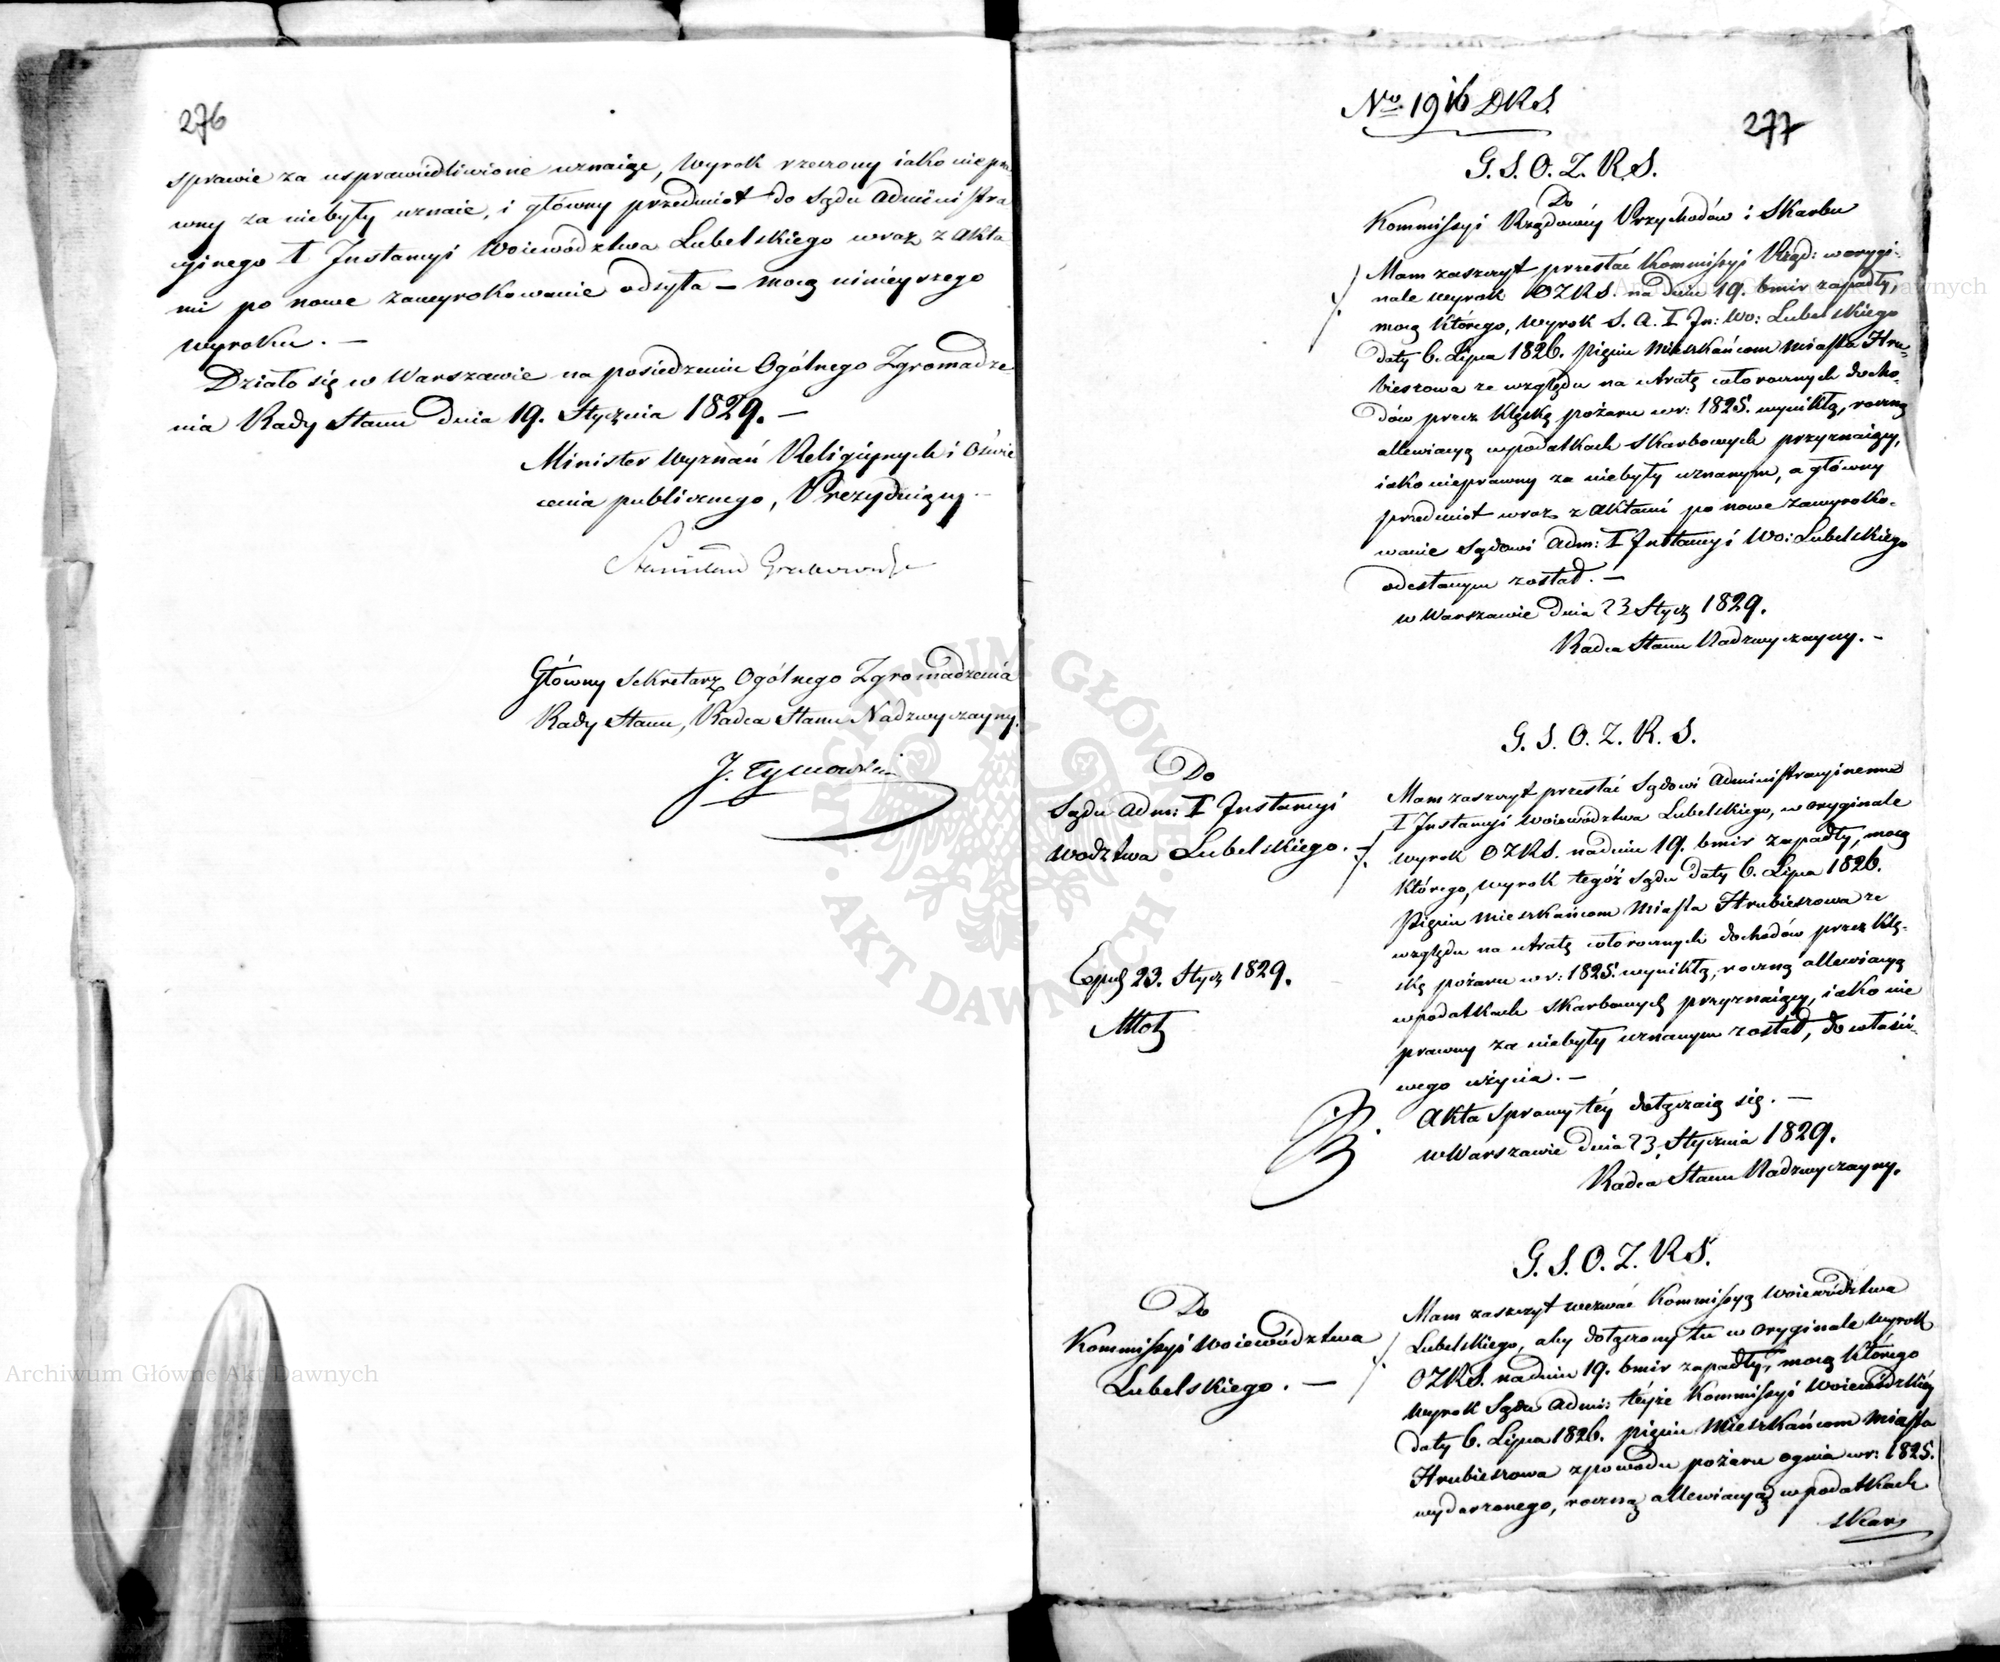 276
sprawie za usprawiedliwione uznaiąc, Wyrok rzeczony iako niepra
wny za niebyły uznaie, i główny przedmiot do Sądu Administra
cyinego I Instancyi Woiewództwa Lubelskiego wraz z Akta
mi po nowe zawyrokowanie odsyła – mocą ninieyszego
wyroku. –
Działo się w Warszawie na posiedzeniu Ogólnego Zgromadze
nia Rady Stanu dnia 19. Stycznia 1829. –
Minister Wyznań Religiynych i Oświe
cenia publicznego, Prezyduiący –
Stanisław Grabowski
Główny Sekretarz Ogólnego Zgromadzenia
Rady Stanu, Radca Stanu Nadzwyczayny.
J. Tymowski
No. 1916 DKS.
277
G. S. O. Z. R. S.
Do
Kommissyi Rządowéy Przychodów i Skarbu
Mam zaszczyt przesłać Kommissyi Rząd: w orygi-
nale wyrok OZRS. na dniu 19. bmir zapadły,
mocą którego, wyrok S. A. I In: Wo: Lubelskiego
daty 6. Lipca 1826. pięciu Mieszkańcom Miasta Hru-
bieszowa ze względu na utratę całorocznych docho-
dów przez klęskę pożaru w r: 1825. wynikłą, roczną
allewiacyą w podatkach Skarbowych przyznaiący,
iako nieprawny za niebyły uznanym, a główny
przedmiot wraz z Aktami po nowe zawyroko-
wanie Sądowi Adm: I Instancyi Wo: Lubelskiego
odesłanym został. –
w Warszawie dnia 23 Stycz 1829.
Radca Stanu Nadzwyczayny. –
G. S. O. Z. R. S.
Do
Sądu Adm: I Instancyi
Wodztwa Lubelskiego. –
Mam zaszczyt przesłać Sądowi Administracyinemu
I Instancyi Woiewództwa Lubelskiego, w oryginale
wyrok OZRS. na dniu 19. bmir zapadły, mocą
którego, wyrok tegóż Sądu daty 6. Lipca 1826.
Pięciu Mieszkańcom Miasta Hrubieszowa ze
względu na utratę całorocznych dochodów przez klę-
skę pożaru w r: 1825. wynikłą, roczną allewiacyą
w podatkach Skarbowych przyznaiący, iako nie
prawny za niebyły uznanym został, do właści-
wego użycia. –
Akta Sprawy téy dołączaią się. –
w Warszawie dnia 23 Stycznia 1829.
Radca Stanu Nadzwyczayny.
23. Stycz 1829.
G. S. O. Z. R. S.
Do
Kommissyi Woiewództwa
Lubelskiego. –
Mam zaszczyt wezwać Kommissyą Woiewództwa
Lubelskiego, aby dołączony tu w oryginale wyrok
OZRS. na dniu 19. bmir zapadły, mocą którego
wyrok Sądu Admi: téyże Kommissyi Woiewódzkiéy
daty 6. Lipca 1826. pięciu Mieszkańcom Miasta
Hrubieszowa z powodu pożaru ognia w r: 1825.
wydarzonego, roczną allewiacyą w podatkach
Skar
Archiwum Główne Akt Dawnych
Archiwum Główne Akt Dawnych
ARCHIWUM GŁÓWNE · AKT DAWNYCH ·